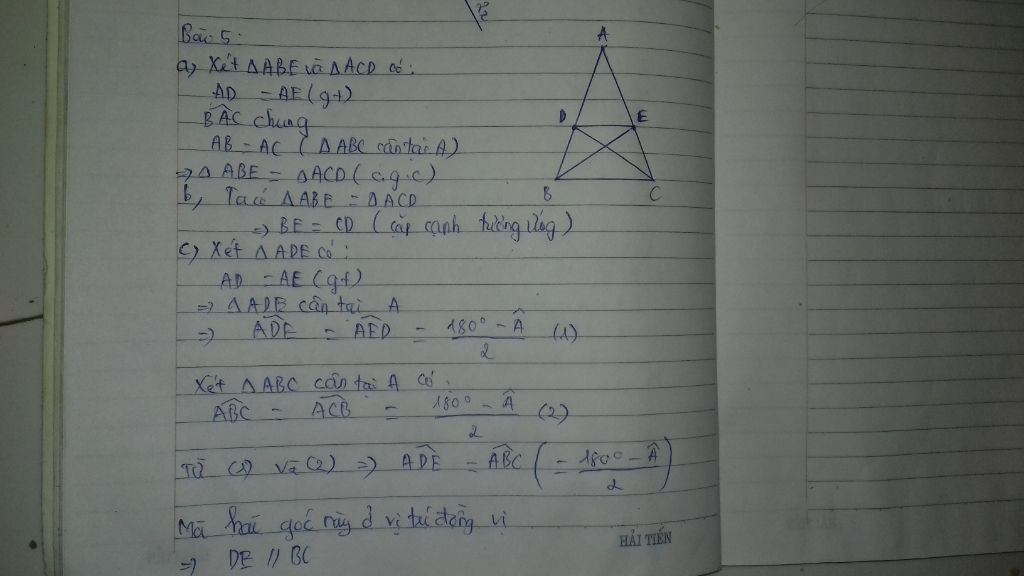 Bài 5:
a, Xét ΔABE và ΔACD có:
AD = AE (gt)
$\widehat{BAC}$ chung
AB = AC (ΔABC cân tại A)
⇒ ΔABE = ΔACD (c.g.c)
b, Ta có ΔABE = ΔACD
⇒ BE = CD (cặp cạnh tương ứng)
c, Xét ΔADE có:
AD = AE (gt)
⇒ ΔADE cân tại A
⇒ $\widehat{ADE}$ = $\widehat{AED}$ = $\frac{180° - \widehat{A}}{2}$ (1)
Xét ΔABC cân tại A có:
$\widehat{ABC}$ = $\widehat{ACB}$ = $\frac{180° - \widehat{A}}{2}$ (2)
Từ (1) và (2) ⇒ $\widehat{ADE}$ = $\widehat{ABC}$ $\left(= \frac{180° - \widehat{A}}{2}\right)$
Mà hai góc này ở vị trí đồng vị
⇒ DE // BC
A
D E
B C
HẢI TIẾN